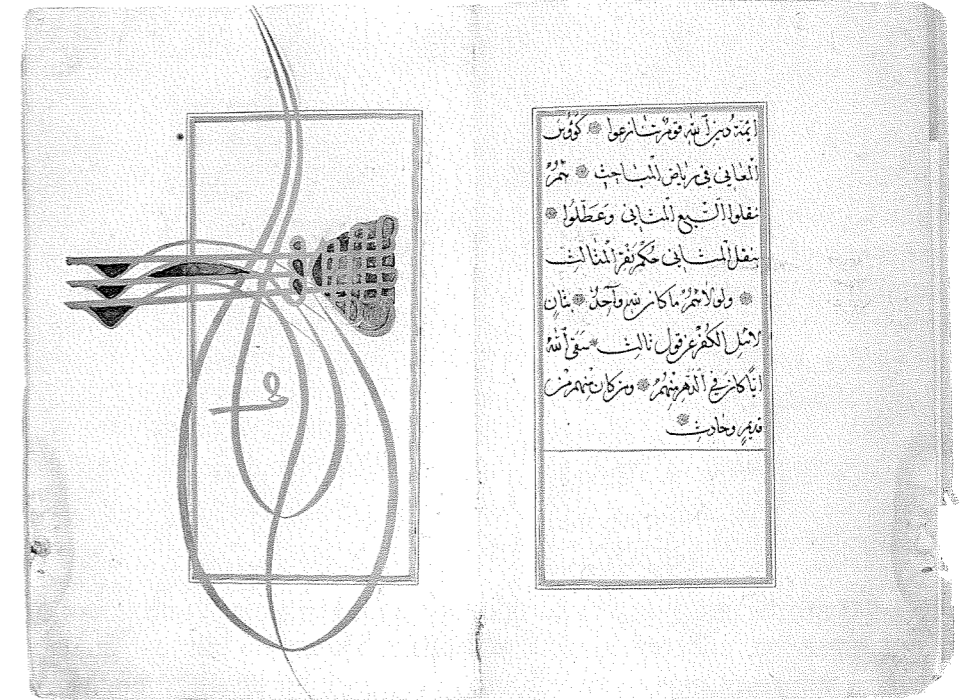 ايمة دين الله قوم تنازعوا كؤوس
المعاني في رياض المباحث هم
نقلوا السبع المثاني وعطلوا
بنقل المثاني حكم نقر المثالث
ولولاهم ما كان لله واحد بثان
لاهل الكفر عن قول ثالث سقى الله
ايا كان في الدهر منهم ومن كان منهم من
قديم وحادث